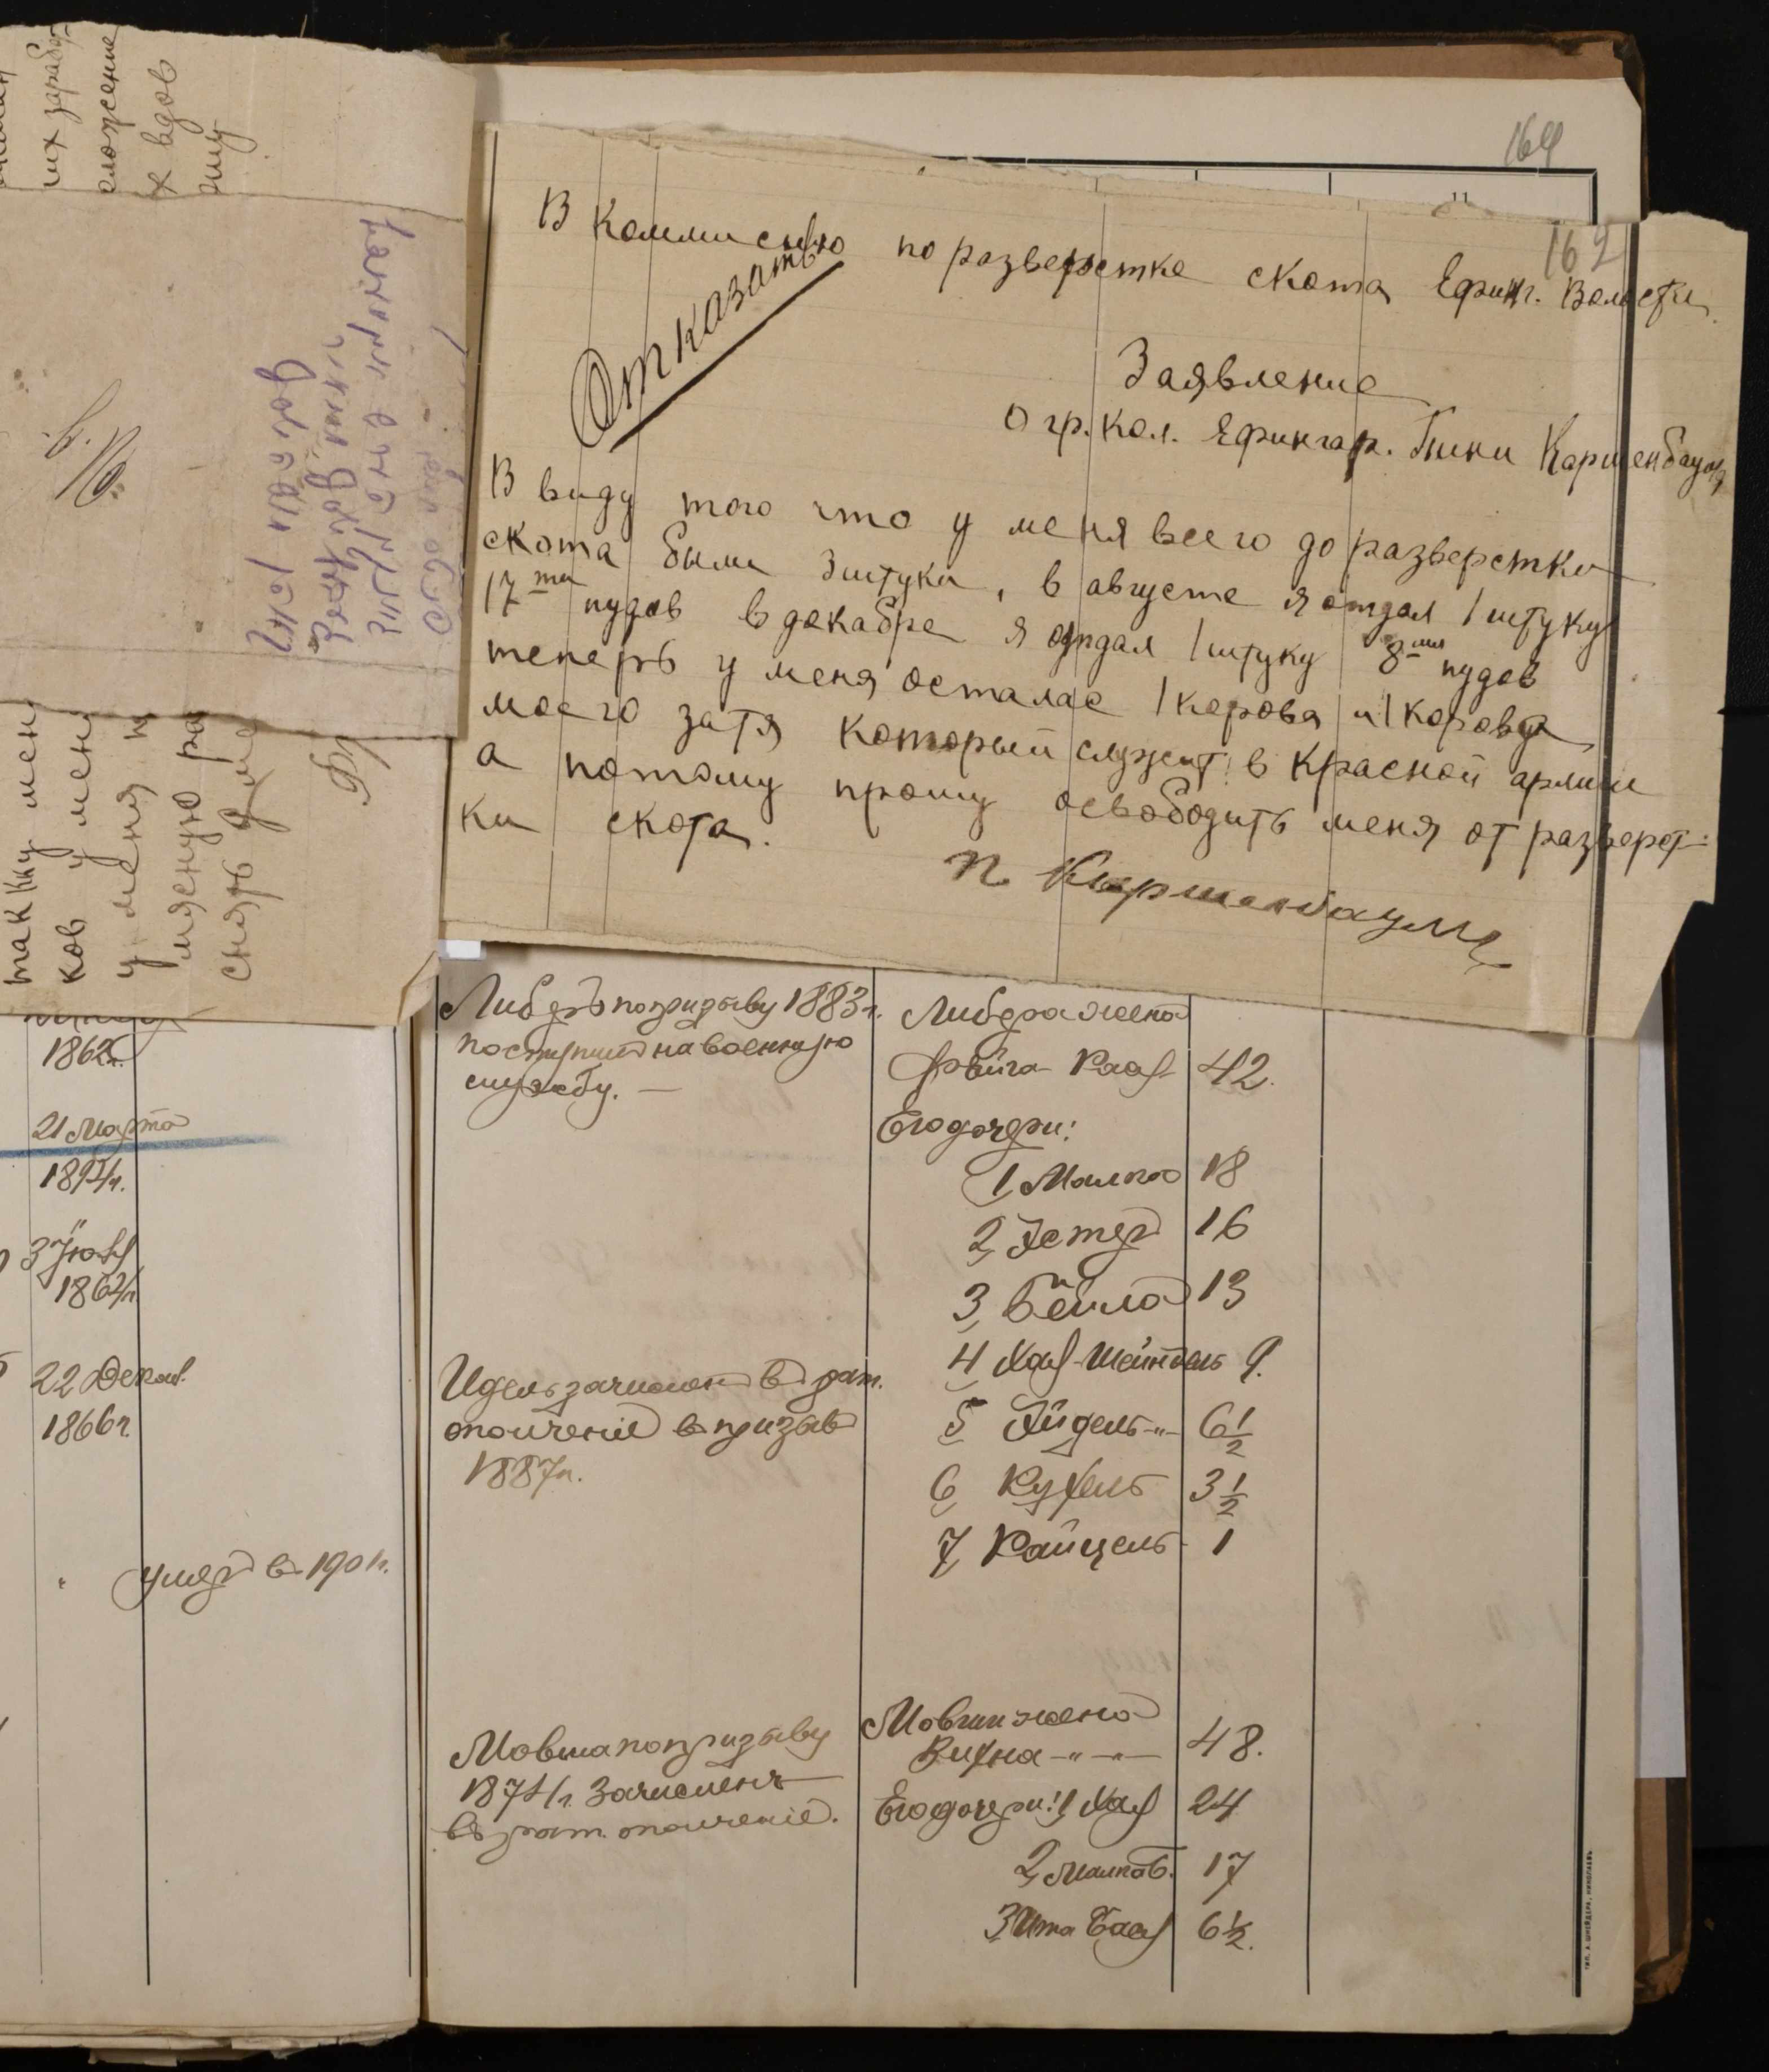 их зарабо
сложение
х вдов
ину
164
11
162
В Коммисию по разверстке скота Ефинг. Волости
Отказать
Заявление
О гр. Кол. Ефингар. Пини Каршенбаум
В виду того что у меня всего до разверстки
скота были 3 штуки, в августе я отдал 1 штуку
17ти пудов в декабре я отдал 1 штуку 8ми пудов
теперь у меня осталас 1 корова и 1 корова
моего затя который служит в Красной армии
а потому прошу освободить меня от разверст-
ки скота.
П Киршенбаум
так Ку мен
ков у мен
у меня н
мясную ра
снять
1862г.
21 Марта
1891г.
3 Июля
1864г.
22 Декаб.
1866г.
умер в 1901г.
Либер по призыву 1883г.
поступил на военную
службу. —
Идель зачислен в рат.
ополчение в призыв
1887г.
Мовша по призыву
1874г. зачислен
въ рат. ополчение.
Либера жена
Фейга Рая 42.
Его дочери:
1, Малка 18
2, Эстер 16
3, Бейла 13
4 Хая-Шейндель 9.
5 Эйдель -"- 6 1/2
6, Рухель 3 1/2
7, Райцель 1
Мовши жена
Вихна -"-"- 48.
Его дочери: 1, Хая 24
2, Малка Б. 17
3 Ита Бася 6 1/2.